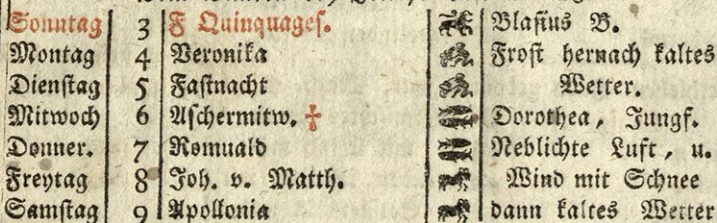 Sonntag 3 F Quinquages. Blasius B.
Montag 4 Veronika Frost hernach kaltes
Dienstag 5 Fastnacht Wetter.
Mitwoch 6 Aschermitw. ☩ Dorothea, Jungf.
Donner. 7 Romuald Neblichte Luft, u.
Freytag 8 Joh. v. Matth. Wind mit Schnee
Samstag 9 Apollonia dann kaltes Wetter